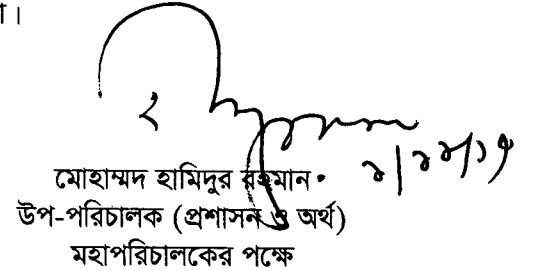 া।
মোহাম্মদ হামিদুর রহমান
উপ-পরিচালক (প্রশাসন ও অর্থ)
মহাপরিচালকের পক্ষে